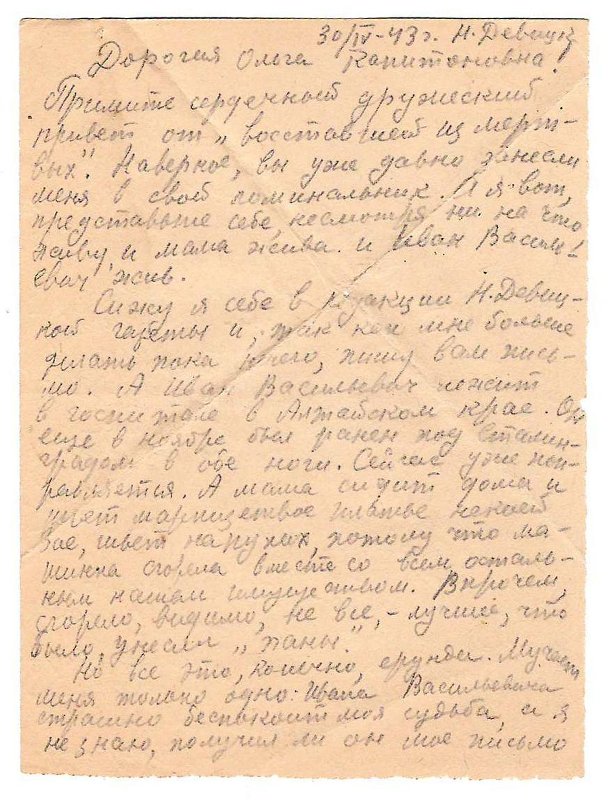 30/IV-43 г. Н. Девицк
Дорогая Ольга Капитоновна!
Примите сердечный дружеский
привет от „восставшей из мерт-
вых". Наверное, вы уже давно занесли
меня в свой поминальник. А я вот,
представьте себе, несмотря ни на что
живу и мама жива и Иван Василь-
евич жив.
Сижу я себе в редакции Н. Девиц-
кой газеты и, так как мне больше
делать пока нечего, пишу вам пись-
мо. А Иван Васильевич лежит
в госпитале в Алтайском крае. Он
еще в ноябре был ранен под Сталин-
градом в обе ноги. Сейчас уже поп-
равляется. А мама сидит дома и
шьет маркизетовое платье
шьет на руках, потому что ма-
шинка сгорела вместе со всем осталь-
ным нашим имуществом. Впрочем,
сгорело, видимо, не все, – лучшее, что
было, унесли „паны".
Но все это, конечно, ерунда. Мучает
меня только одно: Ивана Васильевича
страшно беспокоит моя судьба, а я
не знаю, получил ли он мое письмо